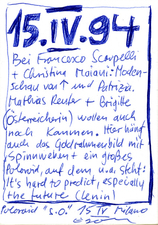 15.IV.94
Bei Francesco Scarpelli
+ Christina Maiani: Moden-
schau von ↑ und Patrizia.
Mathias Reuter + Brigitte
(Österreicherin) wollen auch
noch kommen. Hier hängt
auch das Goldrahmenbild mit
Spinnweben + ein großes
Polaroid, auf dem u.a. steht:
It's hard to predict, especially
the future (Lenin)
Polaroid "S.O." 15 IV Milano